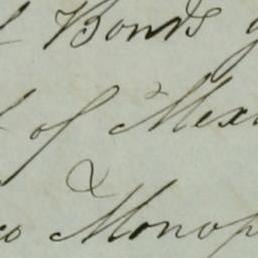 Bonds
of Mexi
co Monop